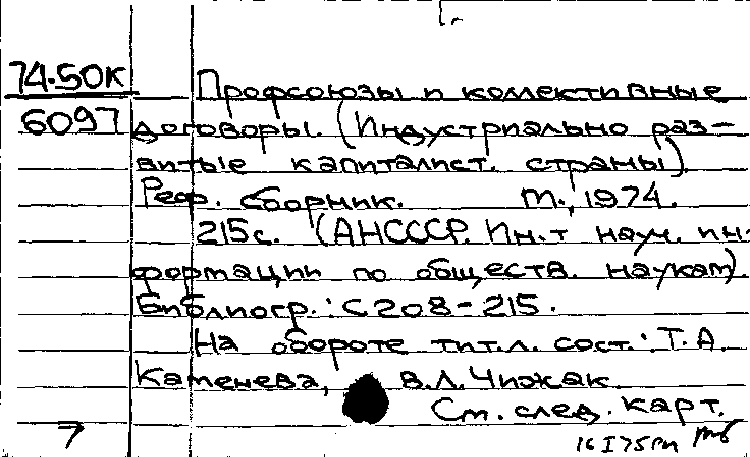 74.50К Профсоюзы и коллективные
6097 договоры. (Индустриально раз-
витые капиталист. страны).
Реф. сборник. М., 1974.
215с. (АНСССР. Ин-т науч. ин-
формации по обществ. наукам).
Библиогр.: С 208-215.
На обороте тит.л. сост.: Т.А.
Каменева, В.Л. Чижак.
См. след. карт.
7 16 I 75